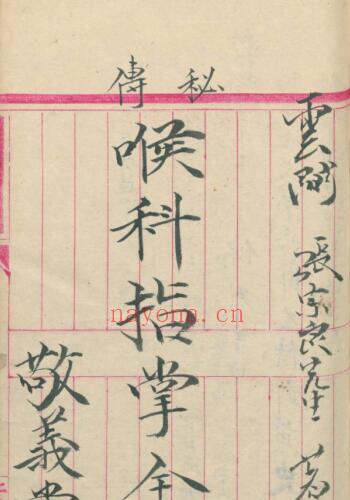 秘傳
雲間 張宗良先生著
喉科指掌全
敬義堂
nayona.cn